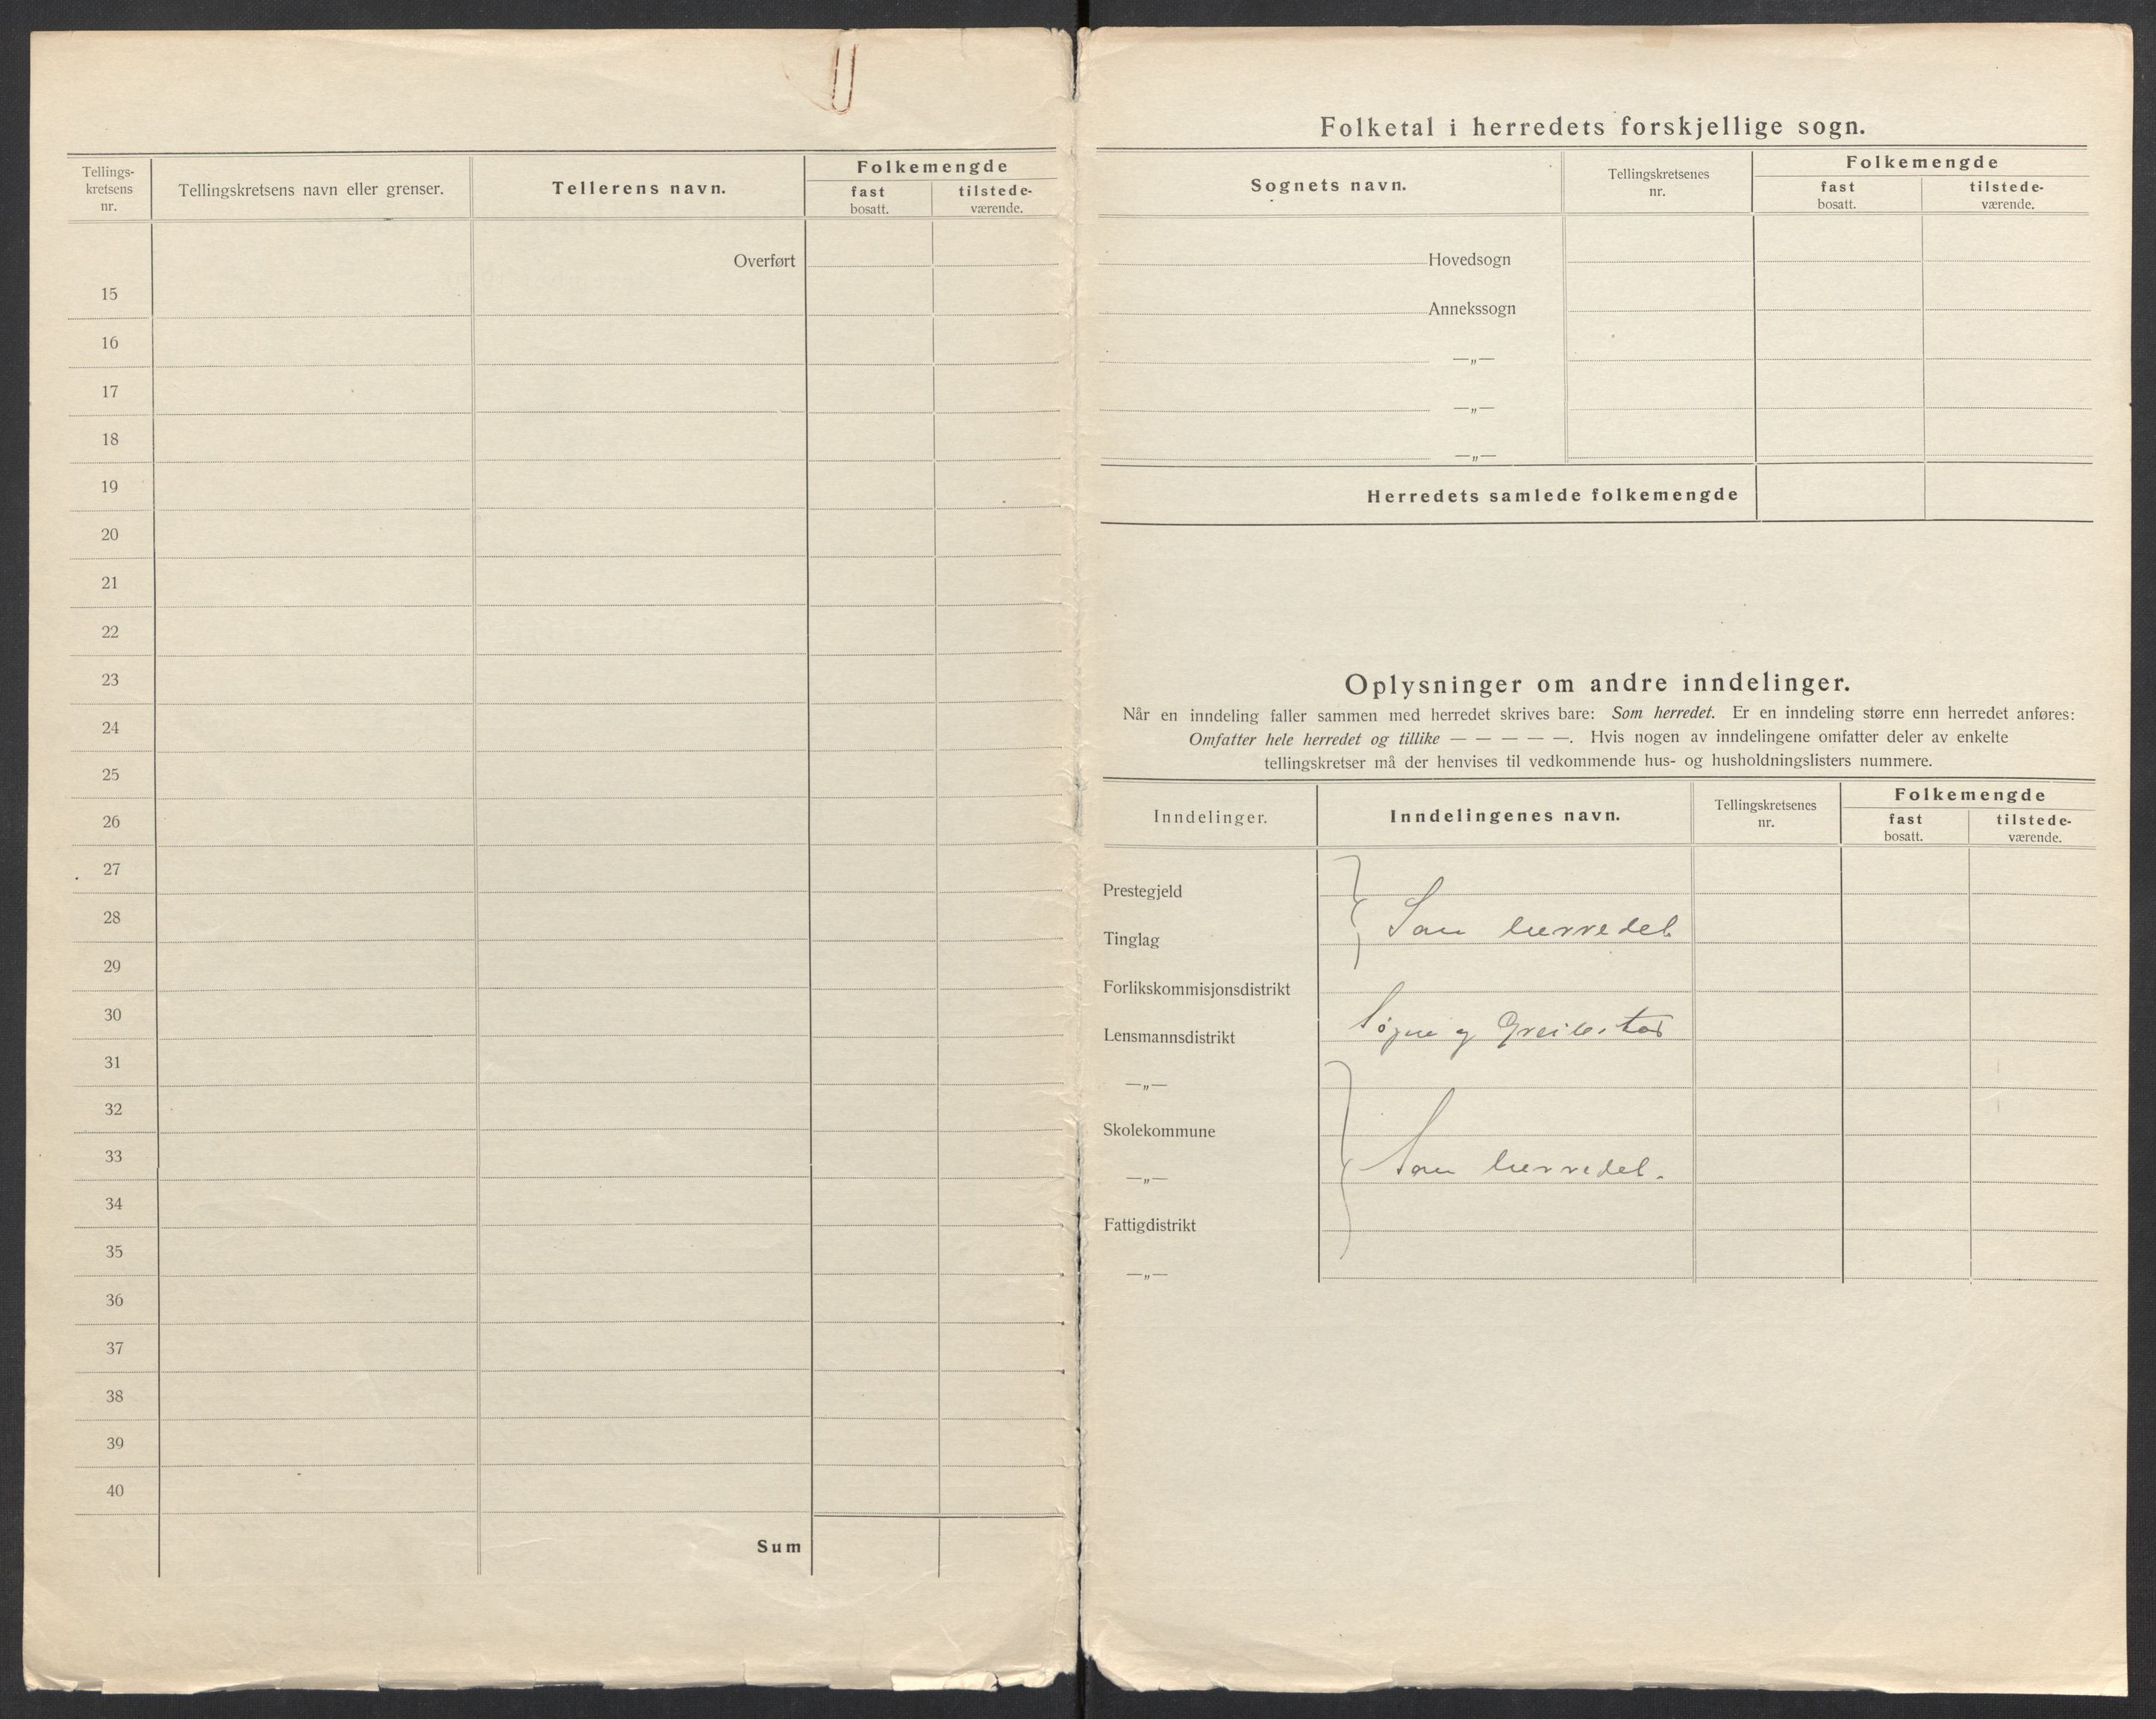 Tellings-
kretsens
nr.
Tellingskretsens navn eller grenser.
Tellerens navn.
Folkemengde
fast
bosatt.
tilstede-
værende.
Overført
15
16
17
18
19
20
21
22
23
24
25
26
27
28
29
30
31
32
33
34
35
36
37
38
39
40
Sum
Folketal i herredets forskjellige sogn.
Sognets navn.
Tellingskretsenes
nr.
Folkemengde
fast
bosatt.
tilstede-
værende.
Hovedsogn
Annekssogn
—„—
—„—
—„—
Herredets samlede folkemengde
Oplysninger om andre inndelinger.
Når en inndeling faller sammen med herredet skrives bare: Som herredet. Er en inndeling større enn herredet anføres:
Omfatter hele herredet og tillike — — — — —. Hvis nogen av inndelingene omfatter deler av enkelte
tellingskretser må der henvises til vedkommende hus- og husholdningslisters nummere.
Inndelinger.
Inndelingenes navn.
Tellingskretsenes
nr.
Folkemengde
fast
bosatt.
tilstede-
værende.
Prestegjeld
Som herredet
Tinglag
Forlikskommisjonsdistrikt
Lensmannsdistrikt Søgne og Greibstad
—„—
Skolekommune
Som herredet.
—„—
Fattigdistrikt
—„—